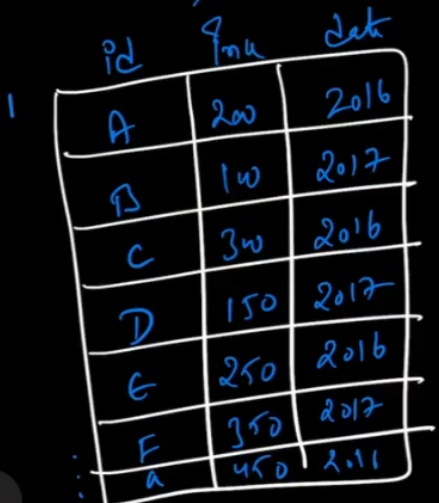 id date
1
A 200 2016
B 100 2017
C 300 2016
D 150 2017
E 250 2016
F 350 2017
a 450